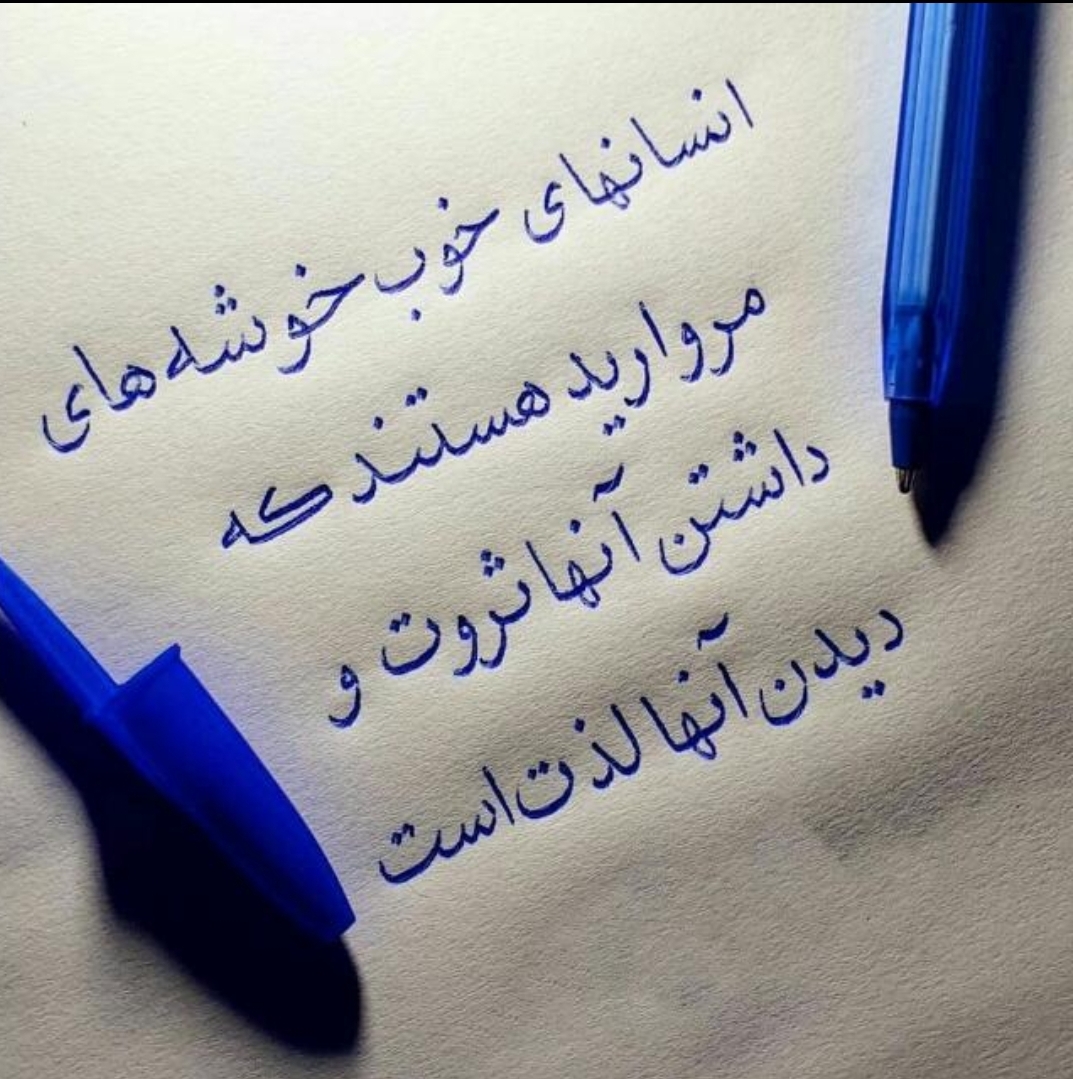 انسانهای خوب خوشه‌های
مروارید هستند که
داشتن آنها ثروت و
دیدن آنها لذت است